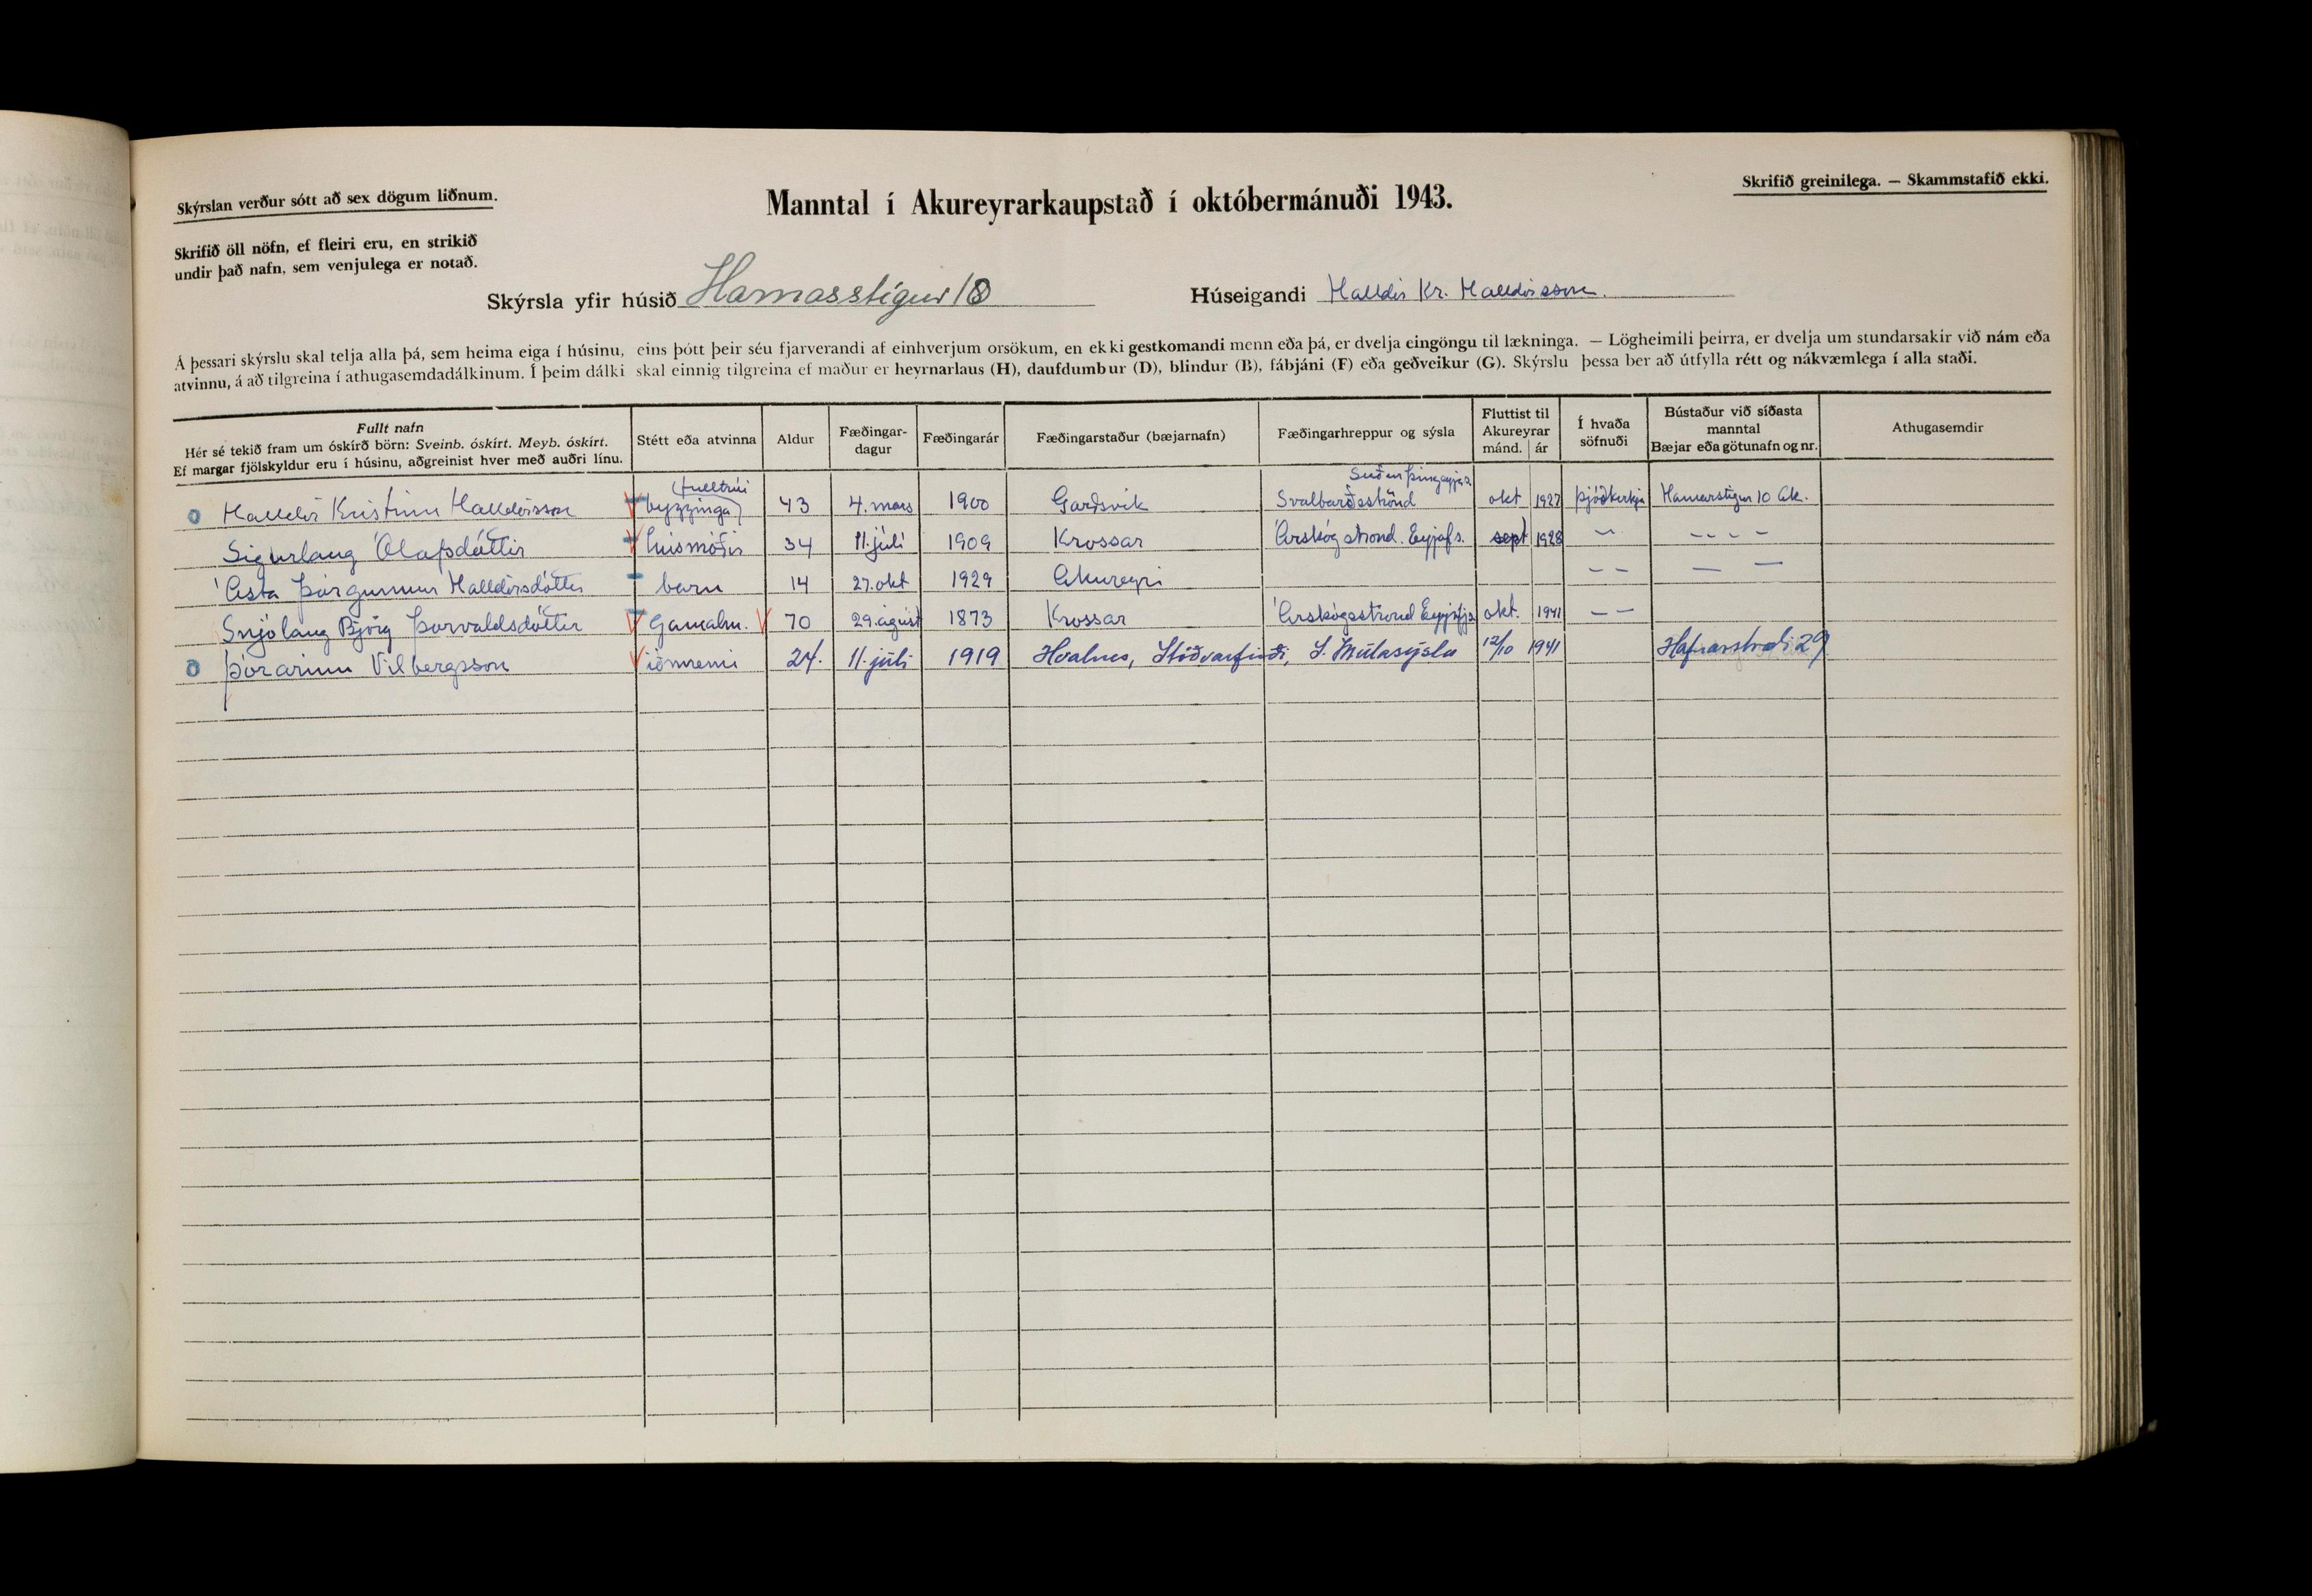 Skýrslan verður sótt að sex dögum liðnum.
Manntal í Akureyrarkaupstað í októbermánuði 1943.
Skrifið greinilega. — Skammstafið ekki.
Skrifið öll nöfn, ef fleiri eru, en strikið
undir það nafn, sem venjulega er notað.
Skýrsla yfir húsið Hamarsstígur 18 Húseigandi Halldór Kr. Halldórsson.
Á þessari skýrslu skal telja alla þá, sem heima eiga í húsinu, eins þótt þeir séu fjarverandi af einhverjum orsökum, en ekki gestkomandi menn eða þá, er dvelja eingöngu til lækninga. — Lögheimili þeirra, er dvelja um stundarsakir við nám eða
atvinnu, á að tilgreina í athugasemdadálkinum. Í þeim dálki skal einnig tilgreina ef maður er heyrnarlaus (H), daufdumbur (D), blindur (B), fábjáni (F) eða geðveikur (G). Skýrslu þessa ber að útfylla rétt og nákvæmlega í alla staði.
Fullt nafn
Hér sé tekið fram um óskírð börn: Sveinb. óskírt. Meyb. óskírt.
Ef margar fjölskyldur eru í húsinu, aðgreinist hver með auðri línu.
Stétt eða atvinna
Aldur
Fæðingar-
dagur
Fæðingarár
Fæðingarstaður (bæjarnafn)
Fæðingarhreppur og sýsla
Fluttist til
Akureyrar
mánd. ár
Í hvaða
söfnuði
Bústaður við síðasta
manntal
Bæjar eða götunafn og nr.
Athugasemdir
(fulltrúi Suður Þingeyjars.
Halldór Kristinn Halldórsson bygginga) 43 4. mars 1900 Garðsvík Svalbarðsströnd okt 1927 Þjóðkirkja Hamarstígur 10 Ak.
Sigurlaug Ólafsdóttir húsmóðir 34 11. júlí 1909 Krossar Árskógstrond. Eyjafs. sept 1928 — - - - -
Ásta Þórgunnur Halldórsdóttir barn 14 27. okt 1929 Akureyri — — — —
Snjólaug Björg Þorvaldsdóttir Gamalm. 70 29. ágúst 1873 Krossar Árskógsstrond Eyjafj. okt. 1941 — —
Þórarinn Vilbergsson iðnnemi 24. 11. júlí 1919 Hvalnes, Stöðvarfirði, S. Múlasýslu 12/10 1941 Hafnarstræti 29